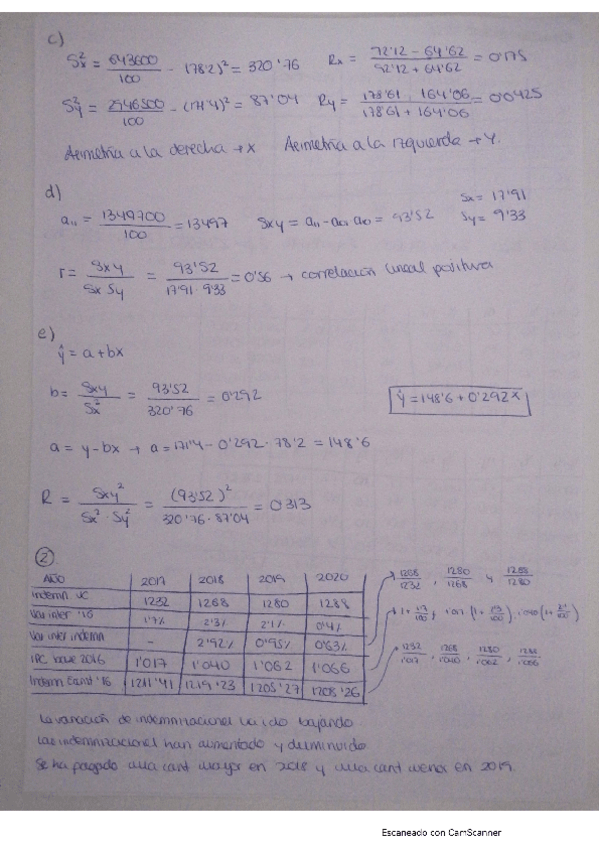 c)
S²x = 643600/100 - (78'2)² = 320'76   Rx = 72'12 - 64'62 / 92'12 + 64'62 = 0'175
S²y = 2946500/100 - (171'4)² = 87'04   Ry = 178'61 . 164'06 / 178'61 + 164'06 = 0'0425
Asimetría a la derecha → X   Asimetría a la izquierda → Y.
d)
a₁₁ = 1349700/100 = 13497   Sxy = a₁₁ - a₀₁ a₁₀ = 93'52   Sx = 17'91
Sy = 9'33
r = Sxy / Sx Sy = 93'52 / 17'91 · 9'33 = 0'56 → correlación lineal positiva
e)
ŷ = a + bx
b = Sxy / Sx² = 93'52 / 320'76 = 0'292   ŷ = 148'6 + 0'292x
a = y - bx → a = 171'4 - 0'292 · 78'2 = 148'6
R = Sxy² / Sx² · Sy² = (93'52)² / 320'76 · 87'04 = 0'313
②
AÑO 2017 2018 2019 2020
Indemn UC 1232 1268 1280 1288   1268/1232 , 1280/1268 y 1288/1280
Var inter '16 1'7% 2'3% 2'1% 0'4%
Var inter indemn - 2'92% 0'95% 0'63%
IPC base 2016 1'017 1'040 1'062 1'066   1232/1'017 , 1268/1'040 , 1280/1'062 , 1288/1'066
Indemn '16 1211'41 1219'23 1205'27 1208'26
La variación de indemnizaciones ha ido bajando
Las indemnizaciones han aumentado y disminuido
Se ha pagado una cant mayor en 2018 y una cant menor en 2019.
Escaneado con CamScanner